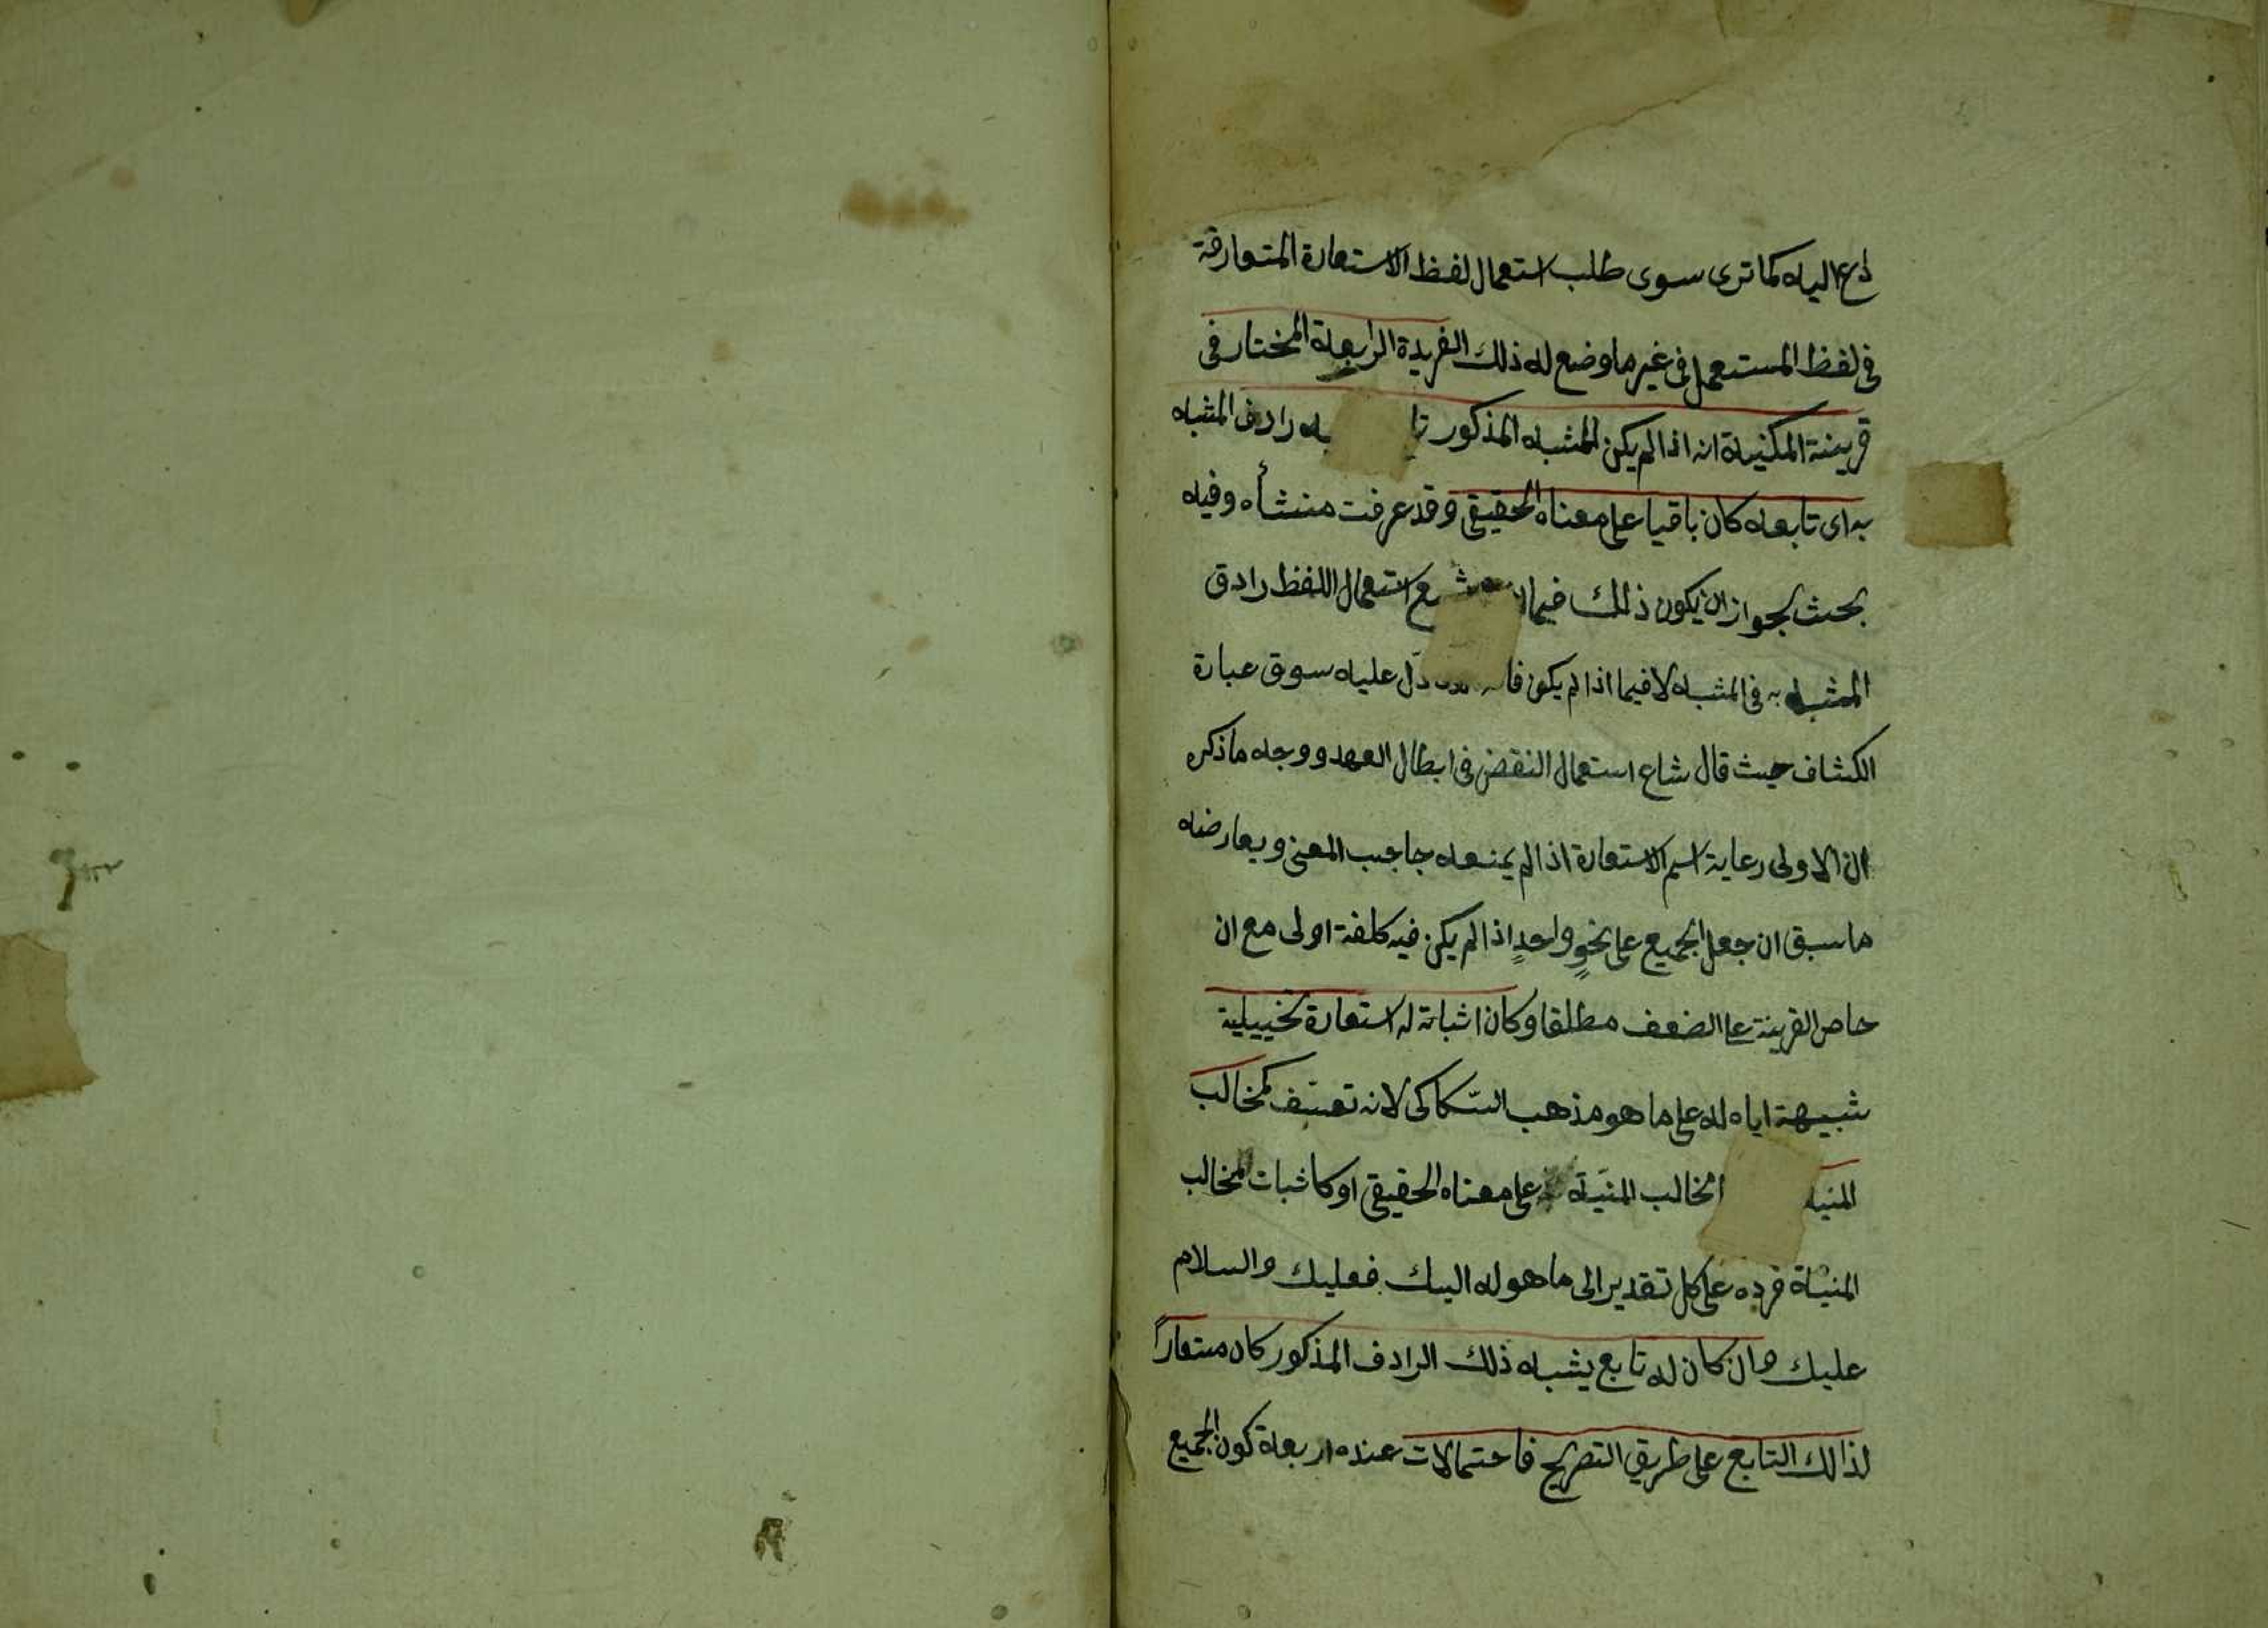 داع اليه كما ترى سوى طلب استعمال لفظ الاستعارة المتعارفة
في لفظ المستعمل في غير ما وضع له ذلك الفريدة الرابعة المختار في
قرينة المكنية انه اذا لم يكن للمشبه المذكور تا به رادف المشبه
به اى تابعه كان باقيا على معناه الحقيقي وقد عرفت منشأه وفيه
بحث لجواز ان يكون ذلك فيما شع استعمال اللفظ رادف
المشبه به في المشبه لا فيما اذا لم يكن دل عليه سوق عبارة
الكشاف حيث قال شاع استعمال النقض في ابطال العهد ووجه ما ذكره
ان الاولى رعاية اسم الاستعارة اذا لم يمنعه جانب المعنى ويعارضه
ما سبق ان جعل الجميع على نحوٍ واحدٍ اذا لم يكن فيه كلفة اولى مع ان
حاصل القرينة على الضعف مطلقا وكان اثباته له استعارة تخييلية
شبيهة اياه له على ما هو مذهب السّكاكى لانه تعسّف كمخالب
المنية المخالب المنيّة على معناه الحقيقي او كاثبات المخالب
المنيّة فرده على كل تقدير الى ما هو له اليك فعليك والسلام
عليك وان كان له تابع يشبه ذلك الرادف المذكور كان مستعاراً
لذالك التابع على طريق التصريح فاحتمالات عنده اربعة كون الجميع